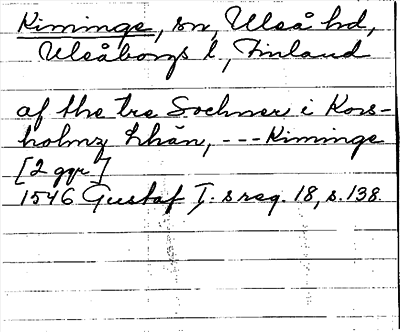 Kiminge, sn, Ulså hd,
Ulsåborgs l, Finland
af the tre Sochner i Kors-
holmz Lhän, --- Kiminge
[2 ggr]
1546 Gustaf I:s reg. 18, s. 138.